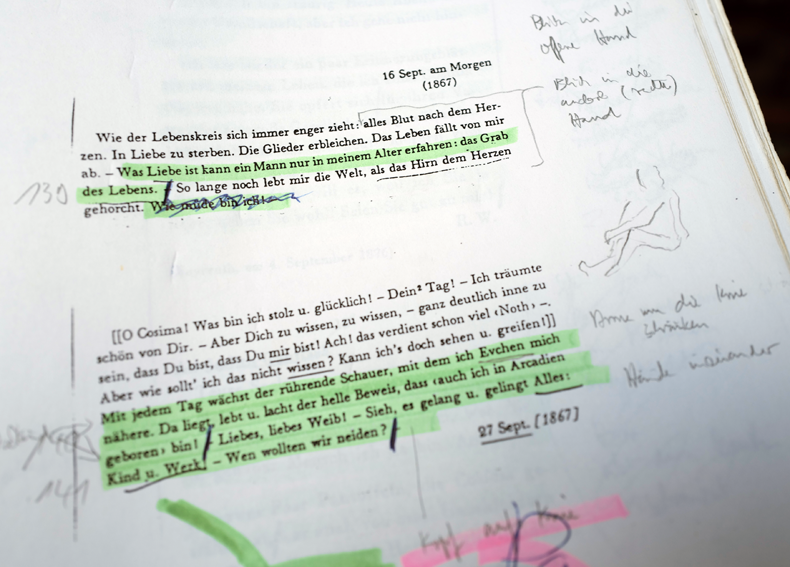 Blick in die
offene Hand
16 Sept. am Morgen
(1867)
Blick in die
andere (rechte)
Hand
Wie der Lebenskreis sich immer enger zieht: alles Blut nach dem Her-
zen. In Liebe zu sterben. Die Glieder erbleichen. Das Leben fällt von mir
ab. – Was Liebe ist kann ein Mann nur in meinem Alter erfahren: das Grab
130
des Lebens. So lange noch lebt mir die Welt, als das Hirn dem Herzen
gehorcht. Wie müde bin ich!
R. W.
[[O Cosima! Was bin ich stolz u. glücklich! – Dein² Tag! – Ich träumte
schön von Dir. – Aber Dich zu wissen, zu wissen, – ganz deutlich inne zu
sein, dass Du bist, dass Du mir bist! Ach! das verdient schon viel ‹Noth› –.
Aber wie sollt' ich das nicht wissen? Kann ich's doch sehen u. greifen!]]
Mit jedem Tag wächst der rührende Schauer, mit dem ich Evchen mich
nähere. Da liegt, lebt u. lacht der helle Beweis, dass ‹auch ich in Arcadien
geboren› bin! Liebes, liebes Weib! – Sieh, es gelang u. gelingt Alles:
Kind u. Werk! – Wen wollten wir neiden?
27 Sept. [1867]
141
Arme um die Knie
schränken
Hände ineinander
Kopf auf Knie